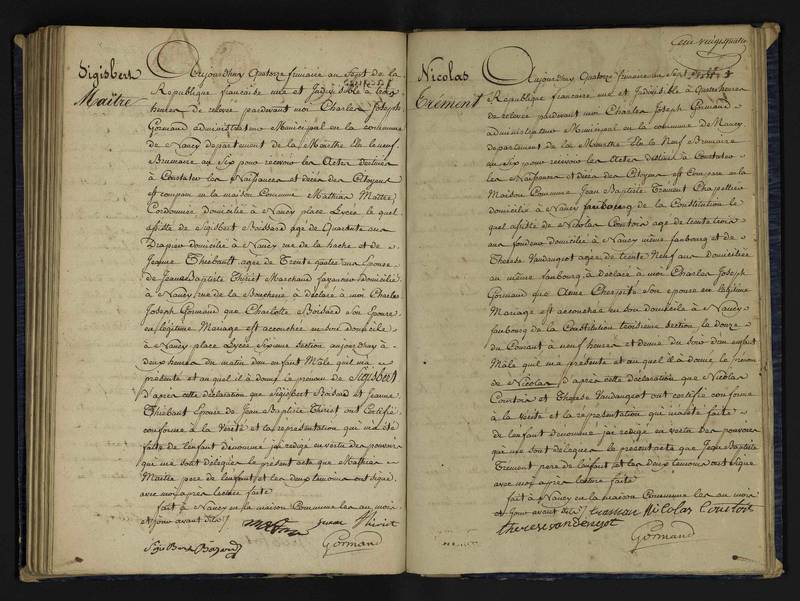 Sigisbert
Maitre
Aujourdhuy Quatorze frimaire an Sept de la
Republique francaise une et Indivisible à trois
heures de relevée pardevant moi Charles Joseph
Gormand administrateur Municipal en la commune
de Nancy departement de la Meurthe Elu le neuf
Brumaire an Six pour recevoir les Actes destinés
à Constater les Naissances et décès des Citoyens
est comparu en la maison Commune Mathias Maitre
Cordonnier domicilié à Nancy place Lycée le quel
assisté de Sigisbert Boissard agé de Quarante ans
Drapier domicilié à Nancy rue de la hache et de
Jeanne Thiébault agée de Trente quatre ans Epouse
de Jean Baptiste Thiriet Marchand fayancier domicilié
à Nancy rue de la Boucherie à déclaré à moi Charles
Joseph Gormand que Charlotte Boisard son Epouse
en légitime Mariage est accouchée en son domicile
à Nancy place Lycée Sixieme section aujourdhuy à
deux heures du matin d'un enfant Mâle quil m'a
présenté et au quel il à donné le prénom de Sigisbert
D'après cette déclaration que Sigisbert Boisard et Jeanne
Thiébaut Epouse de Jean Baptiste Thiriet ont Certifié
conforme à la Vérité et la représentation qui m'a été
faite de l'enfant dénommé jai redigé en vertu des pouvoirs
qui me sont délégués le présent acte que Mathias
Maitre pere de lenfant et les deux temoins ont signé
avec moi après lecture faite
fait à Nancy en la maison Commune les an mois
et jour avant dits
Jeanne Thiriet
Gormand
Cent vingt quatre
Nicolas
Trément
Aujourdhuy Quatorze frimaire an Sept
Republique francaise une et Indivisible à Quatre heures
de relevée pardevant moi Charles Joseph Gormand
administrateur Municipal en la commune de Nancy
departement de la Meurthe Elu le Neuf Brumaire
an Six pour recevoir les Actes destinés à Constater
les Naissances et décès des Citoyens est Comparu en la
Maison Commune Jean Baptiste Trément Chapellier
domicilié à Nancy faubourg de la Constitution le
quel assisté de Nicolas Courtois agé de trente trois
ans fondeur domicilié à Nancy même faubourg et de
Therese Vandangeot agée de trente Neuf ans domiciliée
au même faubourg à déclaré à moi Charles Joseph
Gormand que Anne son epouse en Légitime
Mariage est accouchée en son domicile à Nancy
faubourg de la Constitution troisieme section le douze
du Courant à neuf heures et demie du soir d'un enfant
Mâle quil m'a présenté et au quel il à donné le prénom
de Nicolas D'après cette déclaration que Nicolas
Courtois et Therese Vandangeot ont certifié conforme
à la vérité et la représentation qui m'a été faite
de lenfant dénommé jai redigé en vertu des pouvoirs
qui me sont délégués le présent acte que Jean Baptiste
Trément pere de lenfant et les deux temoins ont signé
avec moi après lecture faite
fait à Nancy en la maison Commune les an mois
et jour avant dits Nicolas Courtois
Gormand